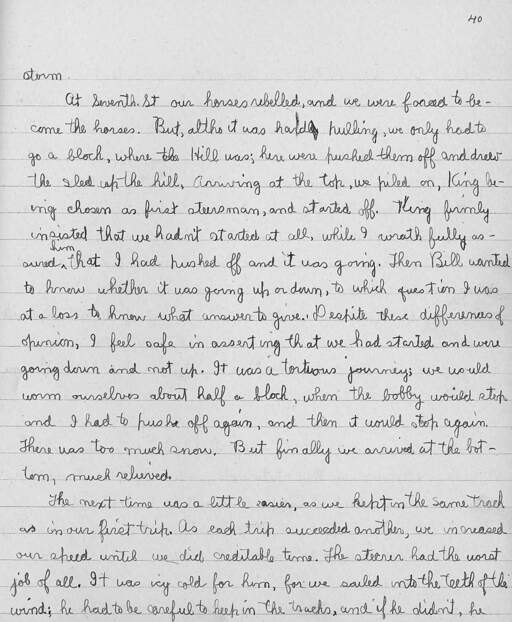 40
storm.
At Seventh St our horses rebelled, and we were forced to be-
come the horses. But, altho it was hard pulling, we only had to
go a block, where the Hill was; here were pushed them off and drew
the sled up the hill. Arriving at the top, we piled on, King be-
ing chosen as first steersman, and started off. King firmly
insisted that we hadn't started at all, while I wrathfully as-
sured him that I had pushed off and it was going. Then Bill wanted
to know whether it was going up or down, to which question I was
at a loss to know what answer to give. Despite these differences of
opinion, I feel safe in asserting that we had started and were
going down and not up. It was a tortuous journey; we would
worm ourselves about half a block, when the bobby would stop
and I had to push off again, and then it would stop again.
There was too much snow. But finally we arrived at the bot-
tom, much relieved.
The next time was a little easier, as we kept in the same track
as in our first trip. As each trip succeeded another, we increased
our speed until we did creditable time. The steerer had the worst
job of all. It was icy cold for him, for we sailed into the teeth of the
wind; he had to be careful to keep in the tracks, and if he didn't, he